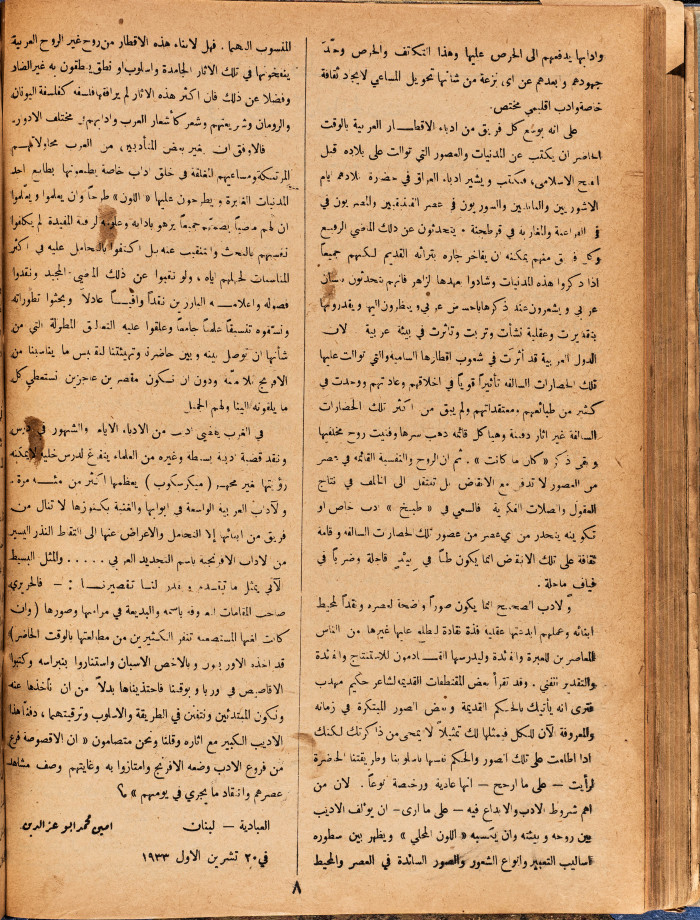 وادابها يدفعهم الى الحرص عليها وهذا التكاتف والحرص وحّد
جهودهم وابعدهم عن اى نزعة من شأنها تحويل المساعي لايجاد ثقافة
خاصة وادب اقليمي مختص.
على انه بوسع كل فريق من ادباء الاقطار العربية بالوقت
الحاضر ان يكتب عن المدنيات والعصور التي توالت على بلاده قبل
الفتح الاسلامي، فيكتب ويشير ادباء العراق في حضارة بلادهم ايام
الاشوريين والبابليين والسوريون في عصر الفينيقيين والمصريون في
الفراعنة والمغاربة في قرطجنة . يتحدثون عن ذلك الماضي الرفيع
وكل فريق منهم يمكنه ان يفاخر جاره بتراثه القديم لكنهم جميعاً
اذا ذكروا هذه المدنيات وشادوا بعهدها الزاهر فانهم يتحدثون بلسان
عربي ويشعرون عند ذكرها باحساس عربي وينظرون اليها ويقدرونها
بتقدير وعقلية نشأت وتربت وتأثرت في بيئة عربية لان
الدول العربية قد أثرت في شعوب اقطارها السامية والتي توالت عليها
تلك الحضارات السالفة تأثيراً قوياً في اخلاقهم وعاداتهم ووحدت في
كثير من طبائعهم ومعتقداتهم ولم يبق من اكثر تلك الحضارات
السالفة غير اثار دفينة وهياكل قائمة ذهب سرها وفنيت روح مخلفيها
وبقي ذكر « كان ما كانت » . ثم ان الروح والنفسية القائمة في عصر
من العصور لا تدفن مع الانقاض بل تنتقل الى الخالف في نتاج
العقول والصلات الفكرية فالسعي في « طبخ » ادب خاص او
تكوينه ينحدر من اي عصر من عصور تلك الحضارت السالفة واقامة
ثقافة على تلك الانقاض انما يكون ظناً في بيئة قاحلة وضرباً في
فياف ماحلة .
والادب الصحيح انما يكون صوراً واضحة لعصره ونقداً لمحيط
ابنائه وعملهم ابدعتها عقلية فذة نقادة ليطلع عليها غيرها من الناس
المعاصرين للعبرة والفائدة وليدرسها القادمون للاستنتاج والفائدة
والتقدير الفني . وقد تقرأ بعض المقتطعات القديمة لشاعر حكيم مهذب
فترى انه يأتيك بالحكم القديمة وبعض الصور المبتكرة في زمانه
والمعروفة الآن للكل فيمثلها لك تمثيلاً لا يمحى من ذاكرتك لكنك
اذا اطلعت على تلك الصور والحكم نفسها باسلوبنا وطريقتنا الحاضرة
لرأيت — على ما ارجح — انها عادية ورخيصة نوعاً . لان من
اهم شروط الادب والابداع فيه — على ما ارى - ان يؤلف الاديب
بين روحه وبيئته وان يكسبه « اللون المحلي » ويظهر بين سطوره
اساليب التعبير وانواع الشعور والصور السائدة في العصر والمحيط
المنسوب اليهما . فهل لابناء هذه الاقطار من روح غير الروح العربية
ينفخونها في تلك الاثار الجامدة واسلوب او نطق ينطقون به غير الضاد
وفضلا عن ذلك فان اكثر هذه الاثار لم يرافقها فلسفه كفلسفة اليونان
والرومان وشرايعهم وشعر كأشعار العرب وادابهم في مختلف الادوار.
فالاوفق ان يغير بعض المتأدبين من العرب محاولاتهم
المرتبكة ومساعيهم القلقة في خلق اداب خاصة يطبعونها بطابع احد
المدنيات الغابرة ويطرحون عليها « اللون » طرحاً وان يعلموا ويعلّموا
ان لهم ماضياً يضمهم جميعاً يزهو بادابه وعلومه الرفيعة المفيدة لم يكلفوا
نفوسهم بالبحث والتنقيب عنه بل اكتفوا بالتحامل عليه في اكثر
المناسبات لجهلهم اياه ، ولو نقبوا عن ذلك الماضي المجيد ونقدوا
فصوله واعلامه البارزين نقداً واقتباساً عادلاً وبحثوا تطوراته
ونسقوه تنسيقاً علمياً جامعاً وعلقوا عليه التعاليق المطولة التي من
شأنها ان توصل بينه وبين حاضرنا وتهيئتنا لنقبس ما يناسبنا من
الافرنج ثلاثمئة ودون ان نكون مقصرين عاجزين نستعطي كل
ما يلقونه الينا ولهم الجميل
في الغرب يقضي اديب من الادباء الايام والشهور في درس
ونقد قصة ادبية بسيطة وغيره من العلماء يتفرغ لدرس خلية لا يمكنه
رؤيتها بغير مجهر ( ميكرسكوب ) يعظمها اكثر من مئة مرة .
والآداب العربية الواسعة في ابوابها والغنية بكنوزها لا تنال من
فريق من ابنائها إلا التحامل والاعراض عنها الى التقاط النذر اليسير
من الاداب الافرنجية باسم التجديد العربي . . . . . والمثل البسيط
الآتي يمثل ما تقدم ويقدر لنا تقصيرنا : — فالحريري
صاحب المقامات المعروفة باسمه والبديعة في مراميها وصورها ( وان
كانت لغتها المستصعبة تنفر الكثيرين من مطالعتها بالوقت الحاضر )
قد اخذه الاوربيون وبالاخص الاسبان واستناروا بنبراسه وكتبوا
الاقاصيص في اوربا وبوقتنا فاحتذيناها بدلاً من ان نأخذها عنه
ونكون المبتدئين ونتفنن في الطريقة والاسلوب وترقيتهما ، دفنّا هذا
الاديب الكبير مع اثاره وقلنا ونحن متصامون « ان الاقصوصة فرع
من فروع الادب وضعه الافرنج وامتازوا به وغايتهم وصف مشاهد
عصرهم وانتقاد ما يجري في يومهم » ؟
العبادية — لبنان امين محمد ابو عز الدين
في ٢٠ تشرين الاول ١٩٣٣
٨